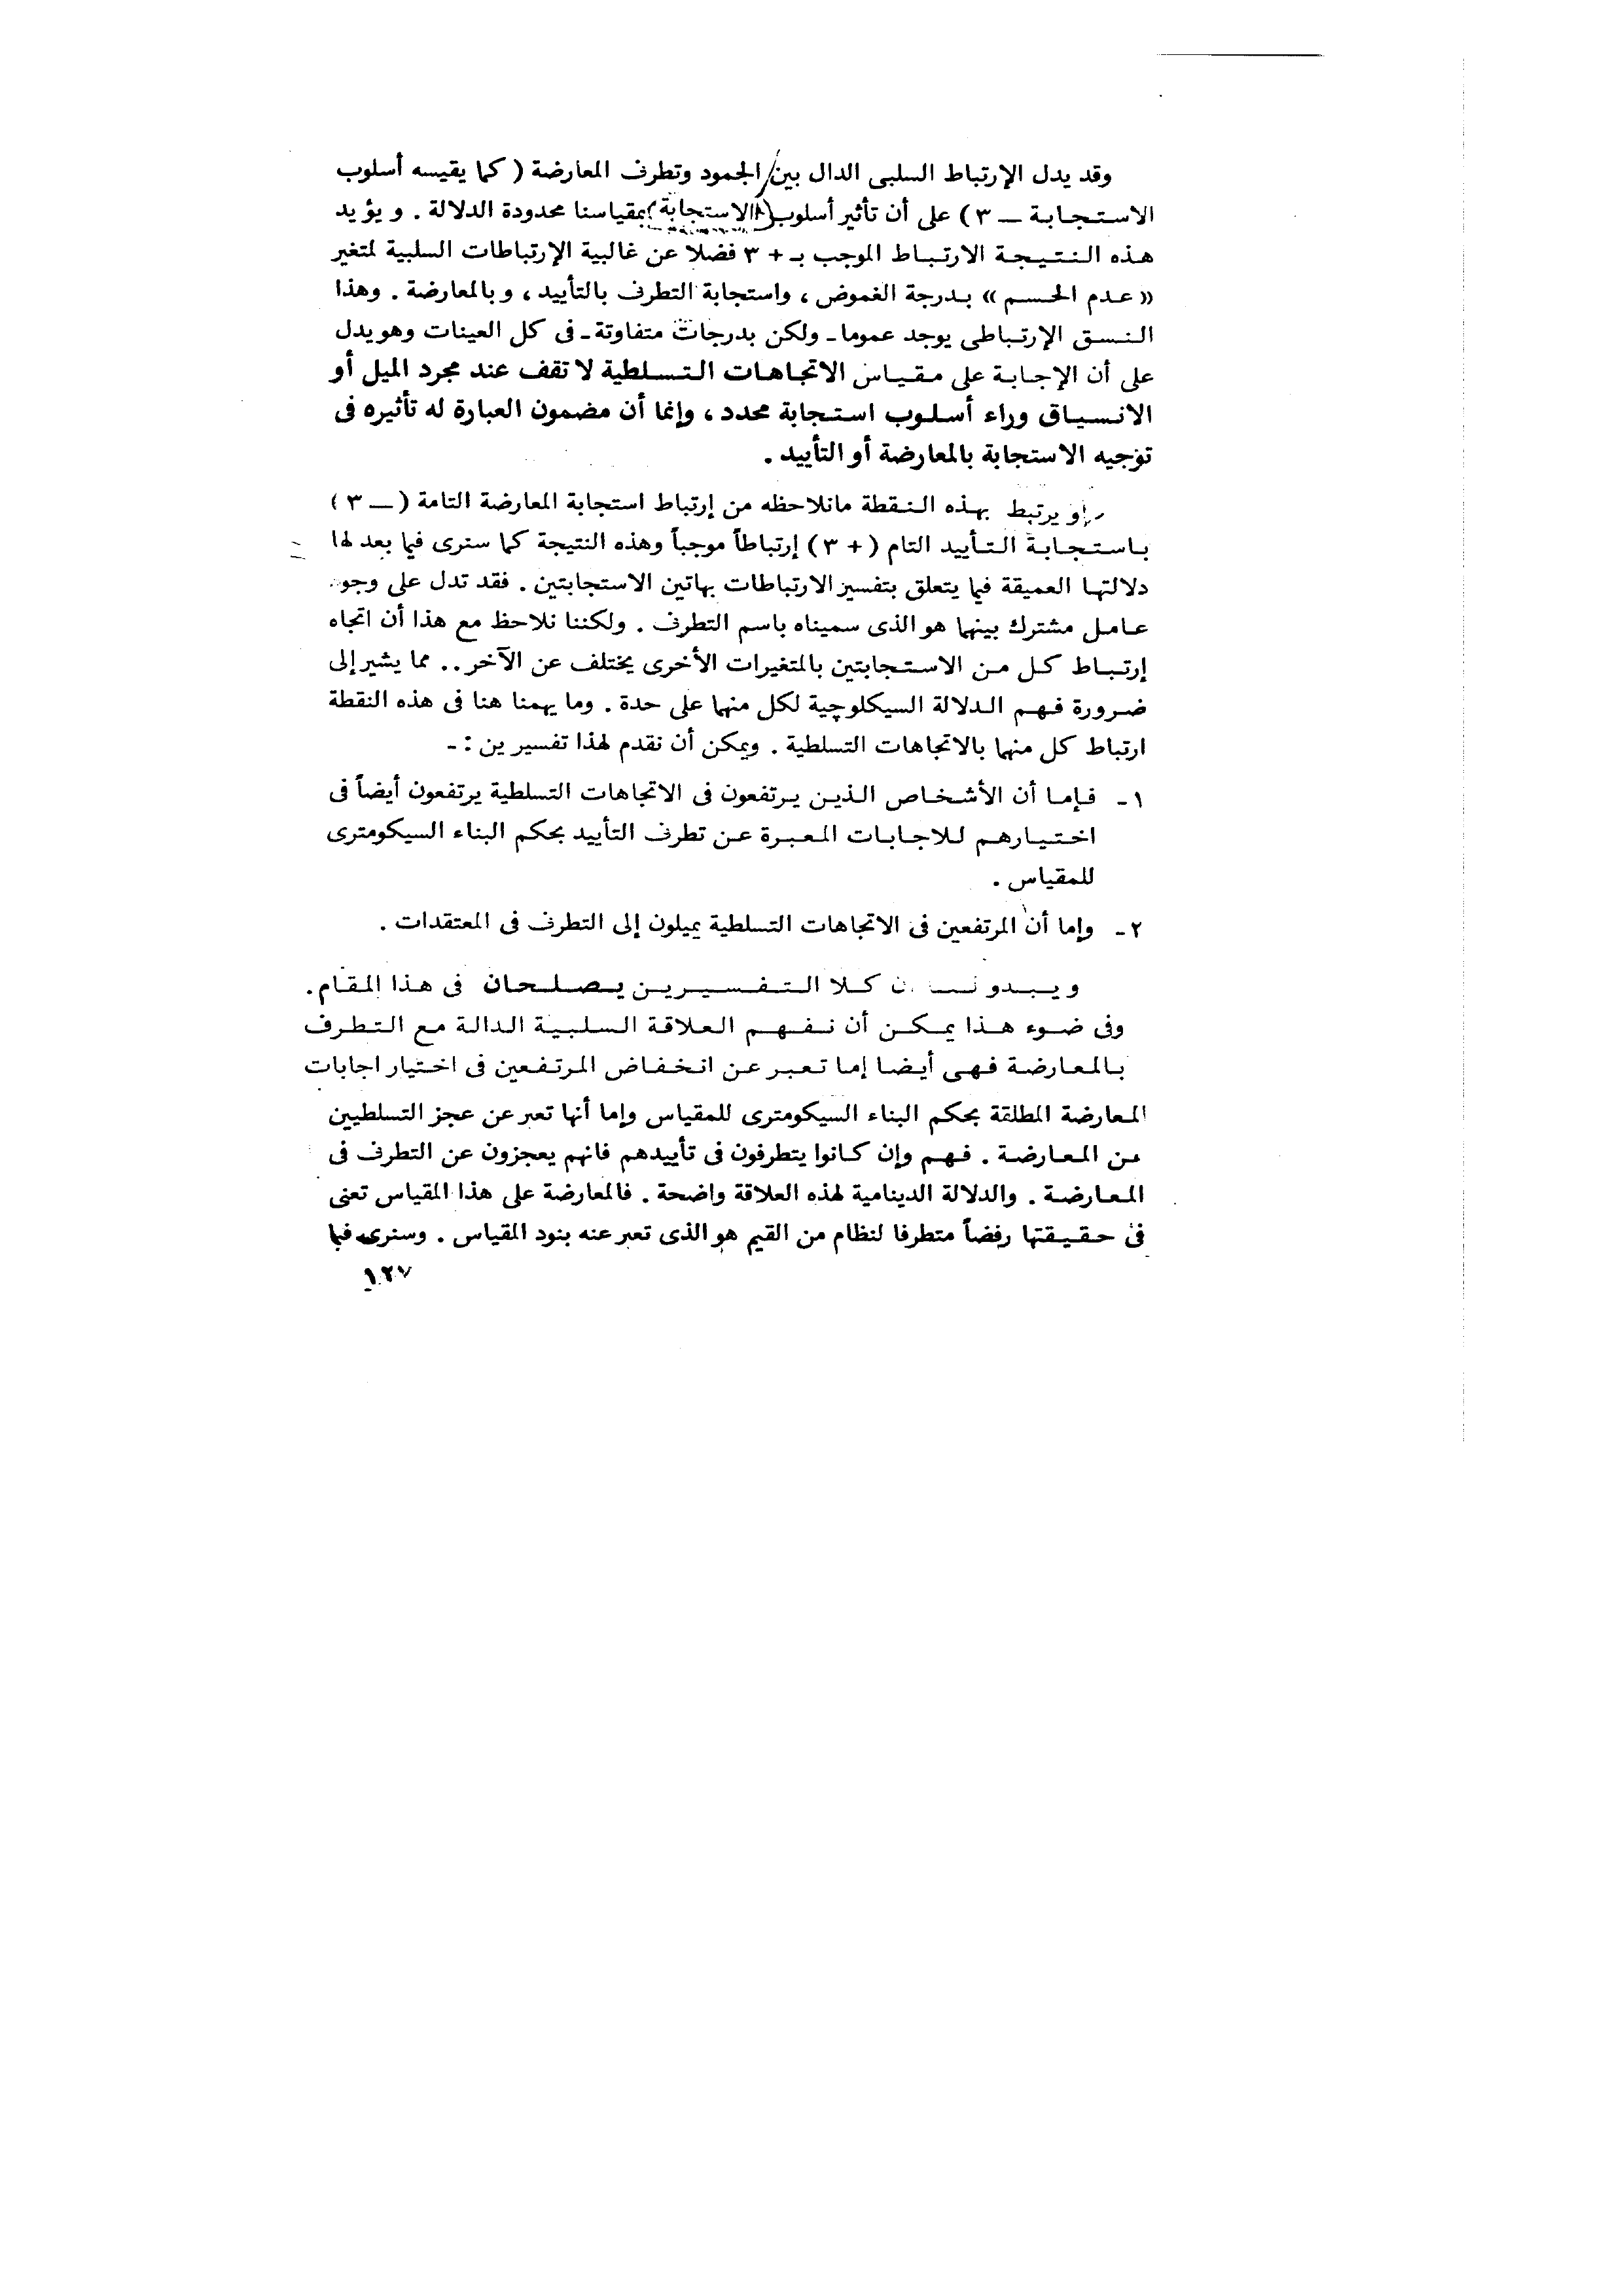 وقد يدل الإرتباط السلبى الدال بين الجمود وتطرف المعارضة ( كما يقيسه أسلوب
الاستجابة — ٣ ) على أن تأثير أسلوب الاستجابة بمقياسنا محدودة الدلالة . و يؤيد
هذه النتيجة الارتباط الموجب بـ + ٣ فضلا عن غالبية الإرتباطات السلبية لمتغير
« عدم الحسم » بدرجة الغموض ، واستجابة التطرف بالتأييد ، و بالمعارضة . وهذا
النسق الإرتباطى يوجد عموما ـ ولكن بدرجات متفاوتة ـ فى كل العينات وهو يدل
على أن الإجابة على مقياس الاتجاهات التسلطية لا تقف عند مجرد الميل أو
الانسياق وراء أسلوب استجابة محدد ، وإنما أن مضمون العبارة له تأثيره فى
توجيه الاستجابة بالمعارضة أو التأييد .
و يرتبط بهذه النقطة مانلاحظه من إرتباط استجابة المعارضة التامة ( — ٣ )
باستجابة التأييد التام ( + ٣ ) إرتباطاً موجباً وهذه النتيجة كما سنرى فيما بعد لها
دلالتها العميقة فيما يتعلق بتفسير الارتباطات بهاتين الاستجابتين . فقد تدل على وجود
عامل مشترك بينهما هو الذى سميناه باسم التطرف . ولكننا نلاحظ مع هذا أن اتجاه
إرتباط كل من الاستجابتين بالمتغيرات الأخرى يختلف عن الآخر .. مما يشير إلى
ضرورة فهم الدلالة السيكلوچية لكل منهما على حدة . وما يهمنا هنا فى هذه النقطة
ارتباط كل منهما بالاتجاهات التسلطية . ويمكن أن نقدم لهذا تفسيرين : ـ
١ ـ فإما أن الأشخاص الذين يرتفعون فى الاتجاهات التسلطية يرتفعون أيضاً فى
اختيارهم للاجابات المعبرة عن تطرف التأييد بحكم البناء السيكومترى
للمقياس .
٢ ـ وإما أن المرتفعين فى الاتجاهات التسلطية يميلون إلى التطرف فى المعتقدات .
ويبدو كلا التفسيرين يصلحان فى هذا المقام .
وفى ضوء هذا يمكن أن نفهم العلاقة السلبية الدالة مع التطرف
بالمعارضة فهى أيضا إما تعبر عن انخفاض المرتفعين فى اختيار اجابات
المعارضة المطلقة بحكم البناء السيكومترى للمقياس وإما أنها تعبر عن عجز التسلطيين
من المعارضة . فهم وإن كانوا يتطرفون فى تأييدهم فانهم يعجزون عن التطرف فى
المعارضة . والدلالة الدينامية لهذه العلاقة واضحة . فالمعارضة على هذا المقياس تعنى
فى حقيقتها رفضاً متطرفا لنظام من القيم هو الذى تعبر عنه بنود المقياس . وسنرى فيما
١٢٧